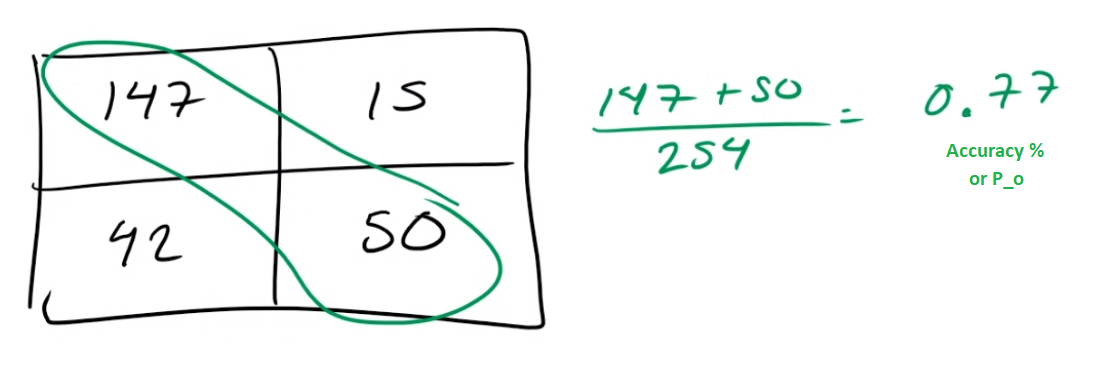 147 15
42 50
147 + 50
254
= 0.77
Accuracy %
or P_o